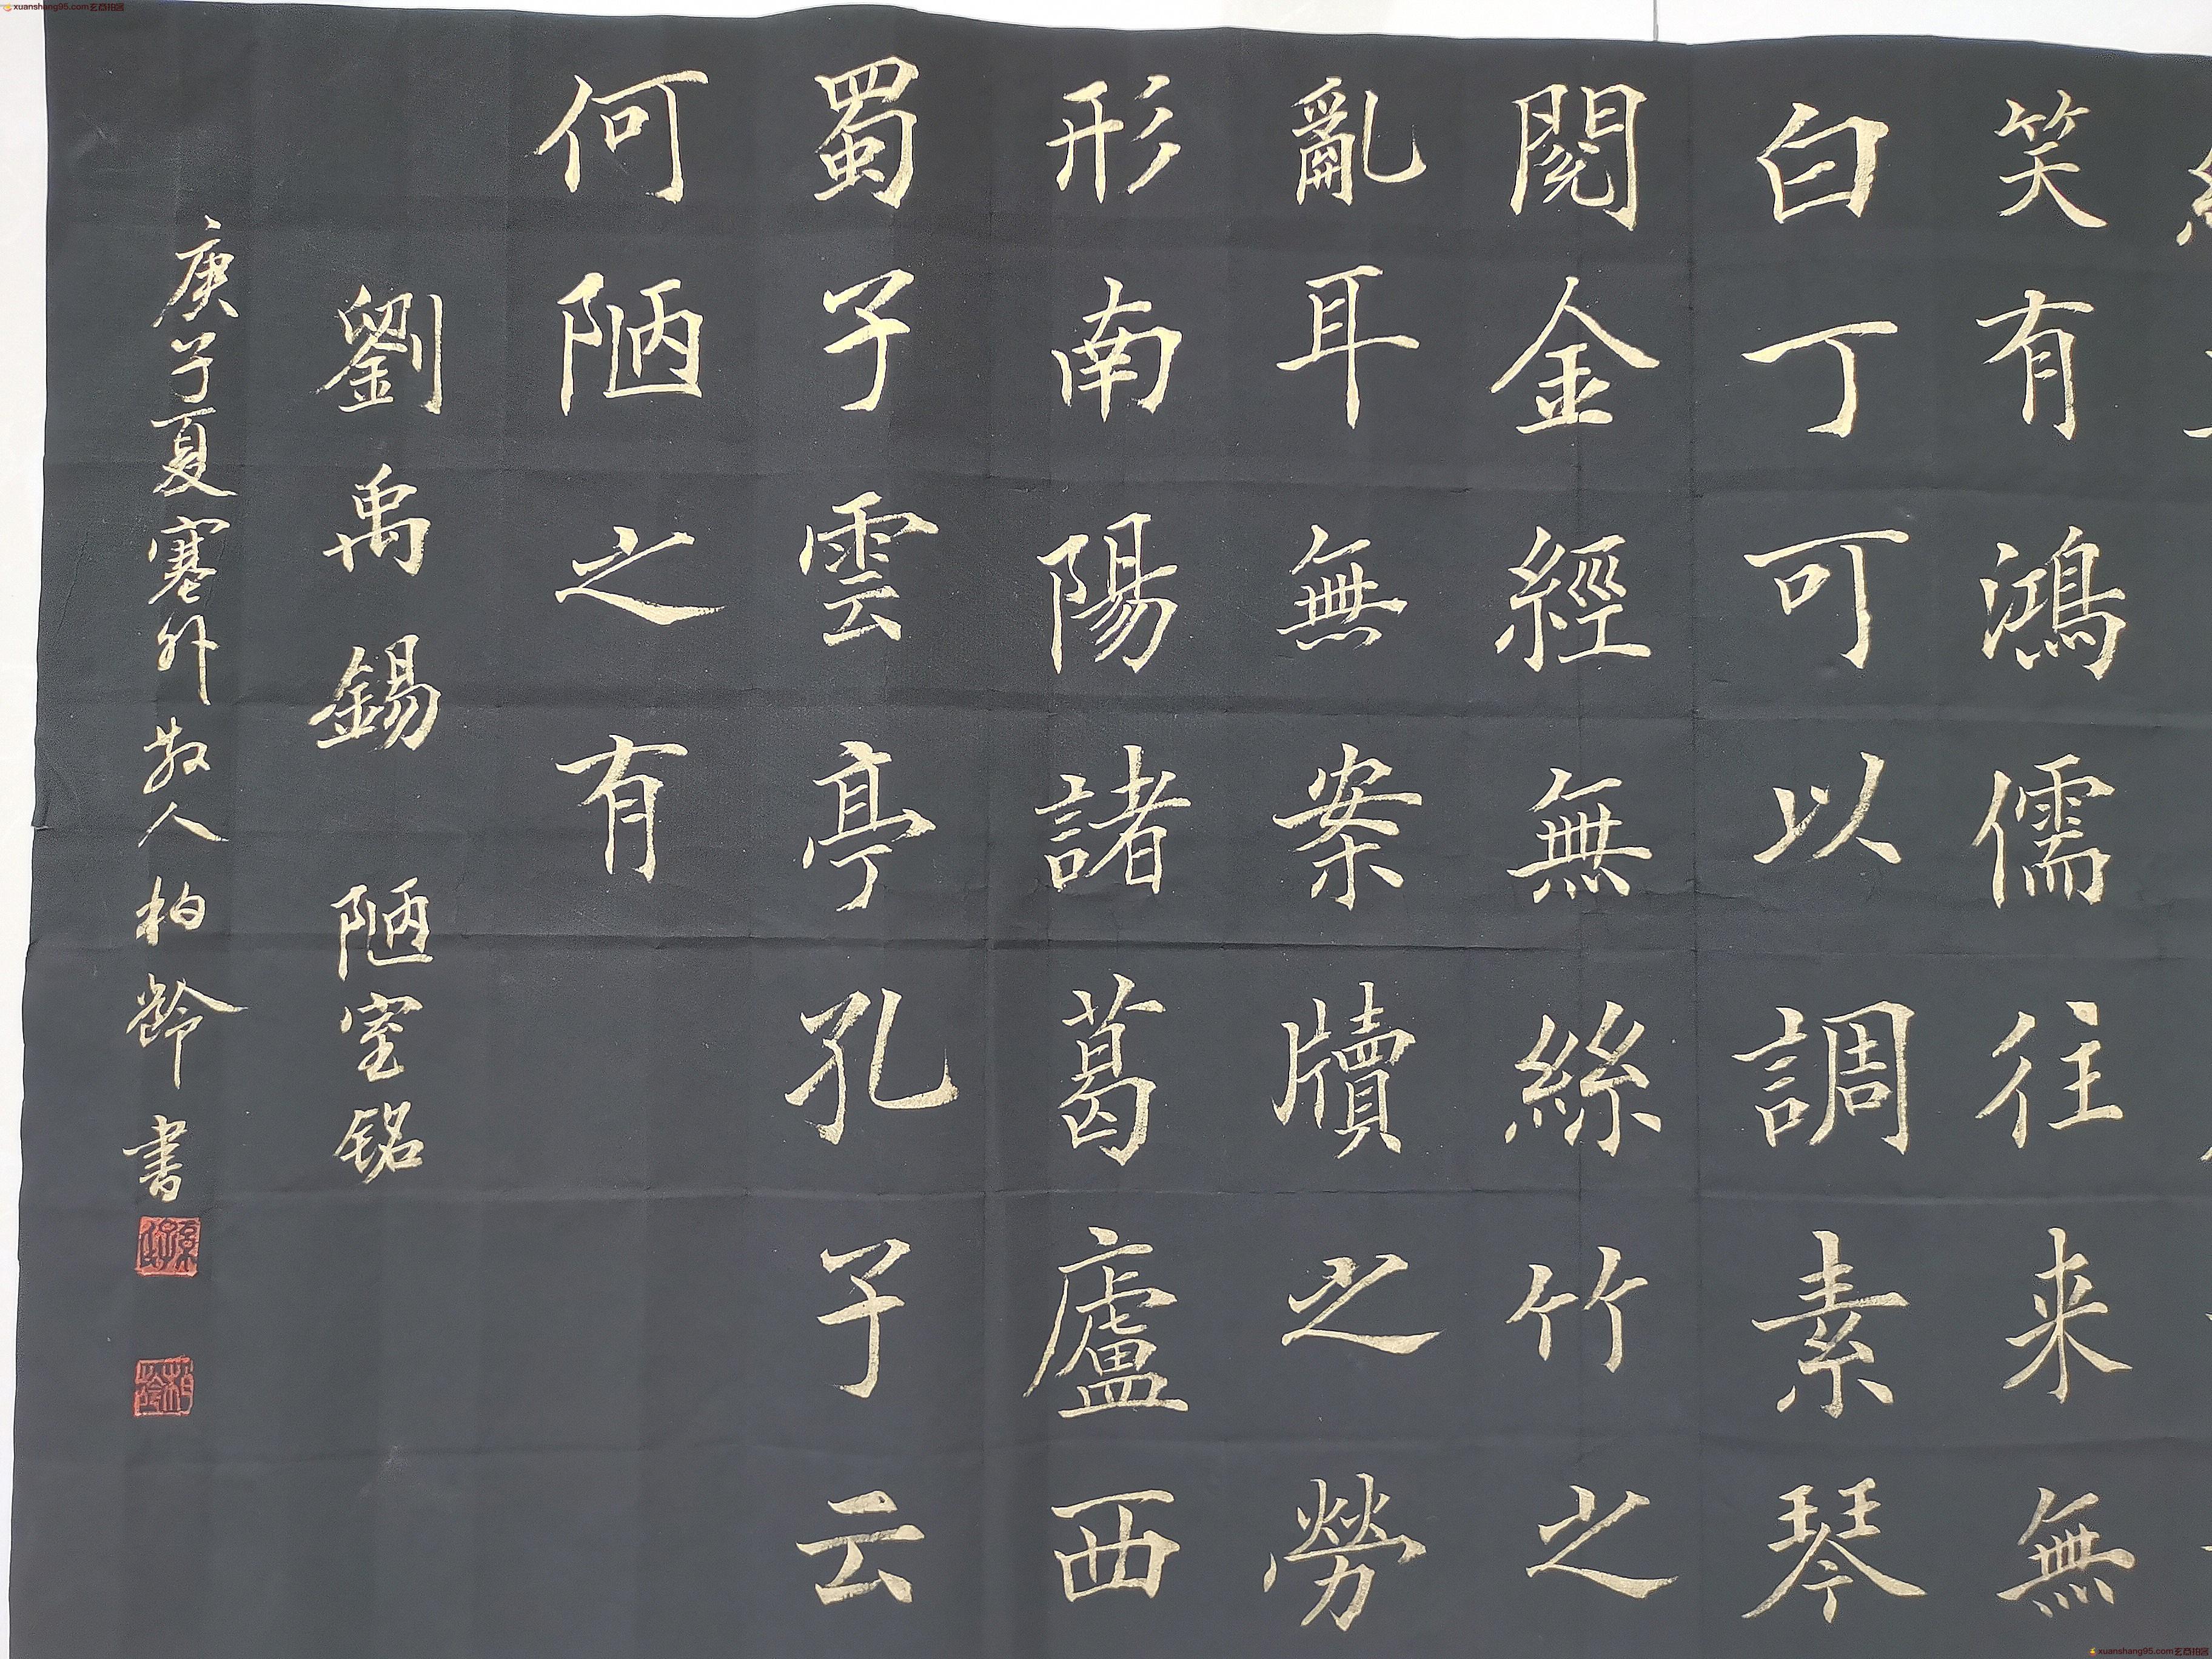 笑有鴻儒往来無
白丁可以調素琴
閱金經無絲竹之
亂耳無案牘之勞
形南陽諸葛廬西
蜀子雲亭孔子云
何陋之有
劉禹錫 陋室铭
庚子夏塞外散人柏齡書
xuanshang95.com玄商拍客
xuanshang95.com玄商拍客